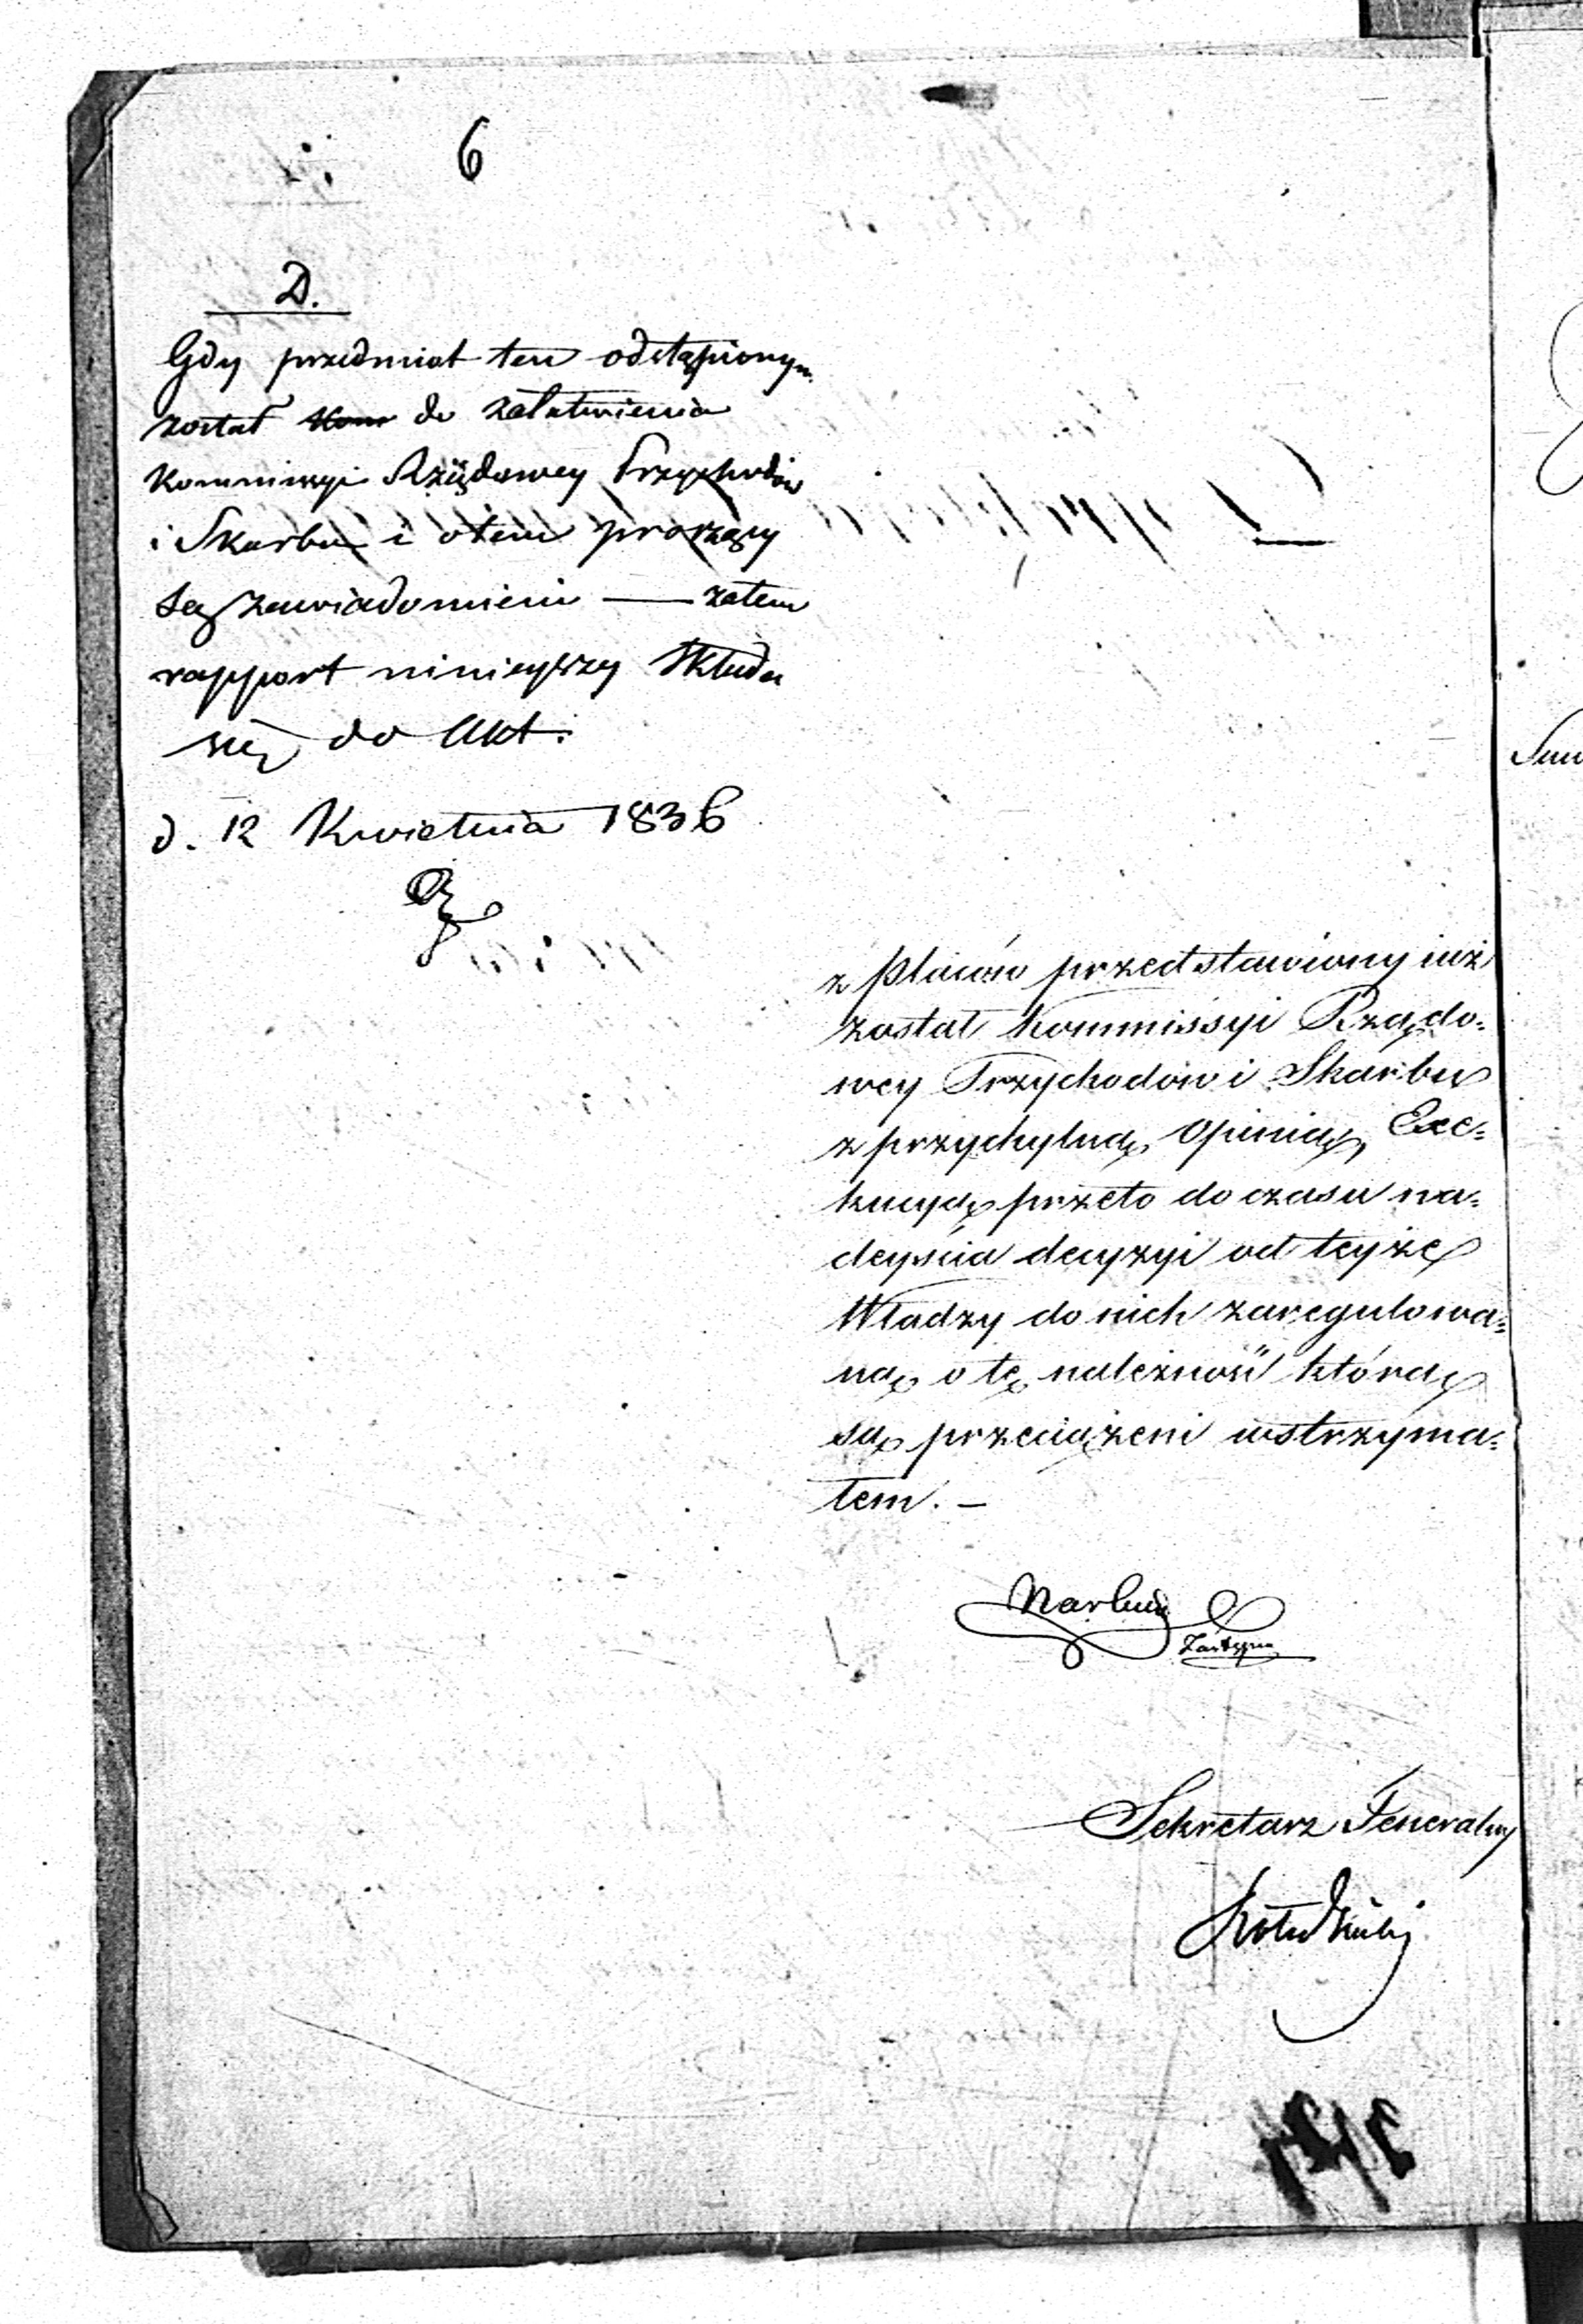 6
D.
Gdy przedmiot ten odstąpionym
został do załatwienia
Kommissyi Rządowey Przychodów
i Skarbu i otem proszący
są zawiadomieni — zatem
rapport ninieyszy składa
się do Akt.
d. 12 Kwietnia 1836
z placów przedstawiony iuż
został Kommissyi Rządo=
wey Przychodów i Skarbu
z przychylną Opinią, Exe=
kucyą przeto do czasu na=
deyścia decyzyi od teyże
Władzy do nich zaregulowa=
ną o tę należność którą
są przeciążeni wstrzyma=
łem. —
Sekretarz Generalny